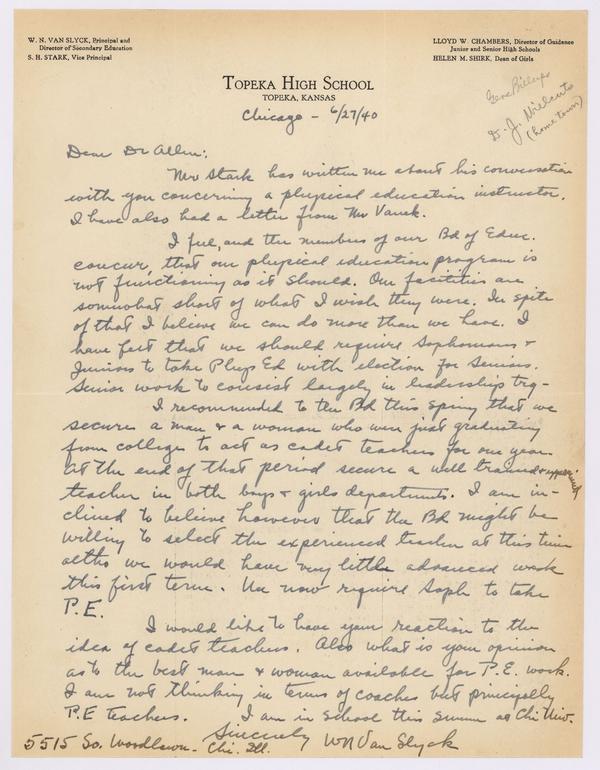 W. N. VAN SLYCK, Principal and
Director of Secondary Education
S. H. STARK, Vice Principal
LLOYD W. CHAMBERS, Director of Guidance
Junior and Senior High Schools
HELEN M. SHIRK, Dean of Girls
TOPEKA HIGH SCHOOL
TOPEKA, KANSAS
Gene Phillips
D. J.
(home town)
Chicago - 6/27/40
Dear Dr Allen:
Mr Stark has written me about his conversation
with you concerning a physical education instructor.
I have also had a letter from Mr Vanek.
I feel, and the members of our Bd of Educ.
concur, that our physical education program is
not functioning as it should. Our facilities are
somewhat short of what I wish they were. In spite
of that I believe we can do more than we have. I
have felt that we should require Sophomores &
Juniors to take Phys Ed with election for Seniors.
Senior work to consist largely in leadership trg-
I recommended to the Bd this spring that we
secure a man & a woman who were just graduating
from college to act as cadet teachers for one year.
At the end of that period secure a well trained & experienced
teacher in both boys & girls departments. I am in-
clined to believe however that the Bd might be
willing to select the experienced teacher at this time
altho we would have very little advanced work
this first term. We now require Soph to take
P.E.
I would like to have your reaction to the
idea of cadet teachers. Also what is your opinion
as to the best man & woman available for P.E. work.
I am not thinking in terms of coaches but principally
P.E teachers. I am in school this summer at Chi Univ.
Sincerely WN Van Slyck
5515 So. Woodlawn - Chi. Ill.